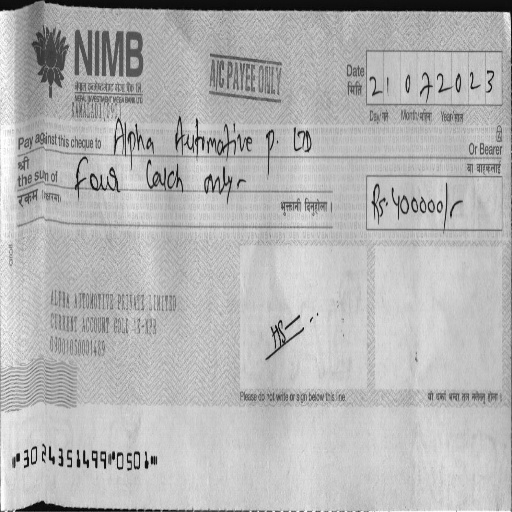 NIMB
नेपाल इन्भेष्टमेन्ट मेगा बैंक लि.
NEPAL INVESTMENT MEGA BANK LTD
A/C PAYEE ONLY
Date
मिति
21 07 2023
Day/गते Month/महिना Year/साल
Pay against this cheque to Alpha Automotive P. LTD
श्री
Or Bearer
वा वाहकलाई
the sum of Four Lakh only-
रकम
भुक्तानी दिनुहोला ।
Rs. 400000/-
ALPHA AUTOMOTIVE PRIVATE LIMITED
CURRENT ACCOUNT
Please do not write or sign below this line
30243514990501